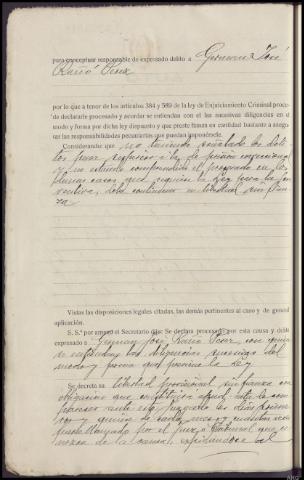 para conceptuar responsable de expresado delito a German José
Rubió Pérez
por lo que a tenor de los artículos 384 y 589 de la ley de Enjuiciamiento Criminal proce-
de declararle procesado y acordar se entiendan con el las sucesivas diligencias en el
modo y forma por dicha ley dispuesto y que preste fianza en cantidad bastante a asegu-
rar las responsabilidades pecuniarias que puedan imponérsele.
Considerando que no teniendo señalado los deli-
tos pena superior a la de prisión correccional
y no estando comprendido el procesado en los
demas casos que la ley para la pre-
ventiva, debe continuar en libertad sin fian-
za
Vistas las disposiciones legales citadas, las demás pertinentes al caso y de general
aplicación.
S. S.ª por ante mi el Secretario dijo: Se declara procesado por esta causa y delito
expresado a German José Rubió Pérez con quien
se entiendan las diligencias sucesivas del
modo y forma que previene la ley
Se decreta su libertad provisional sin fianza con
obligacion que constituirá apud acta de com-
parecer ante este Juzgado los dias primero
y quince de cada mes y cuantas veces
fuere llamado por el Juez o Tribunal que co-
nozca de la causa, expidiendose al